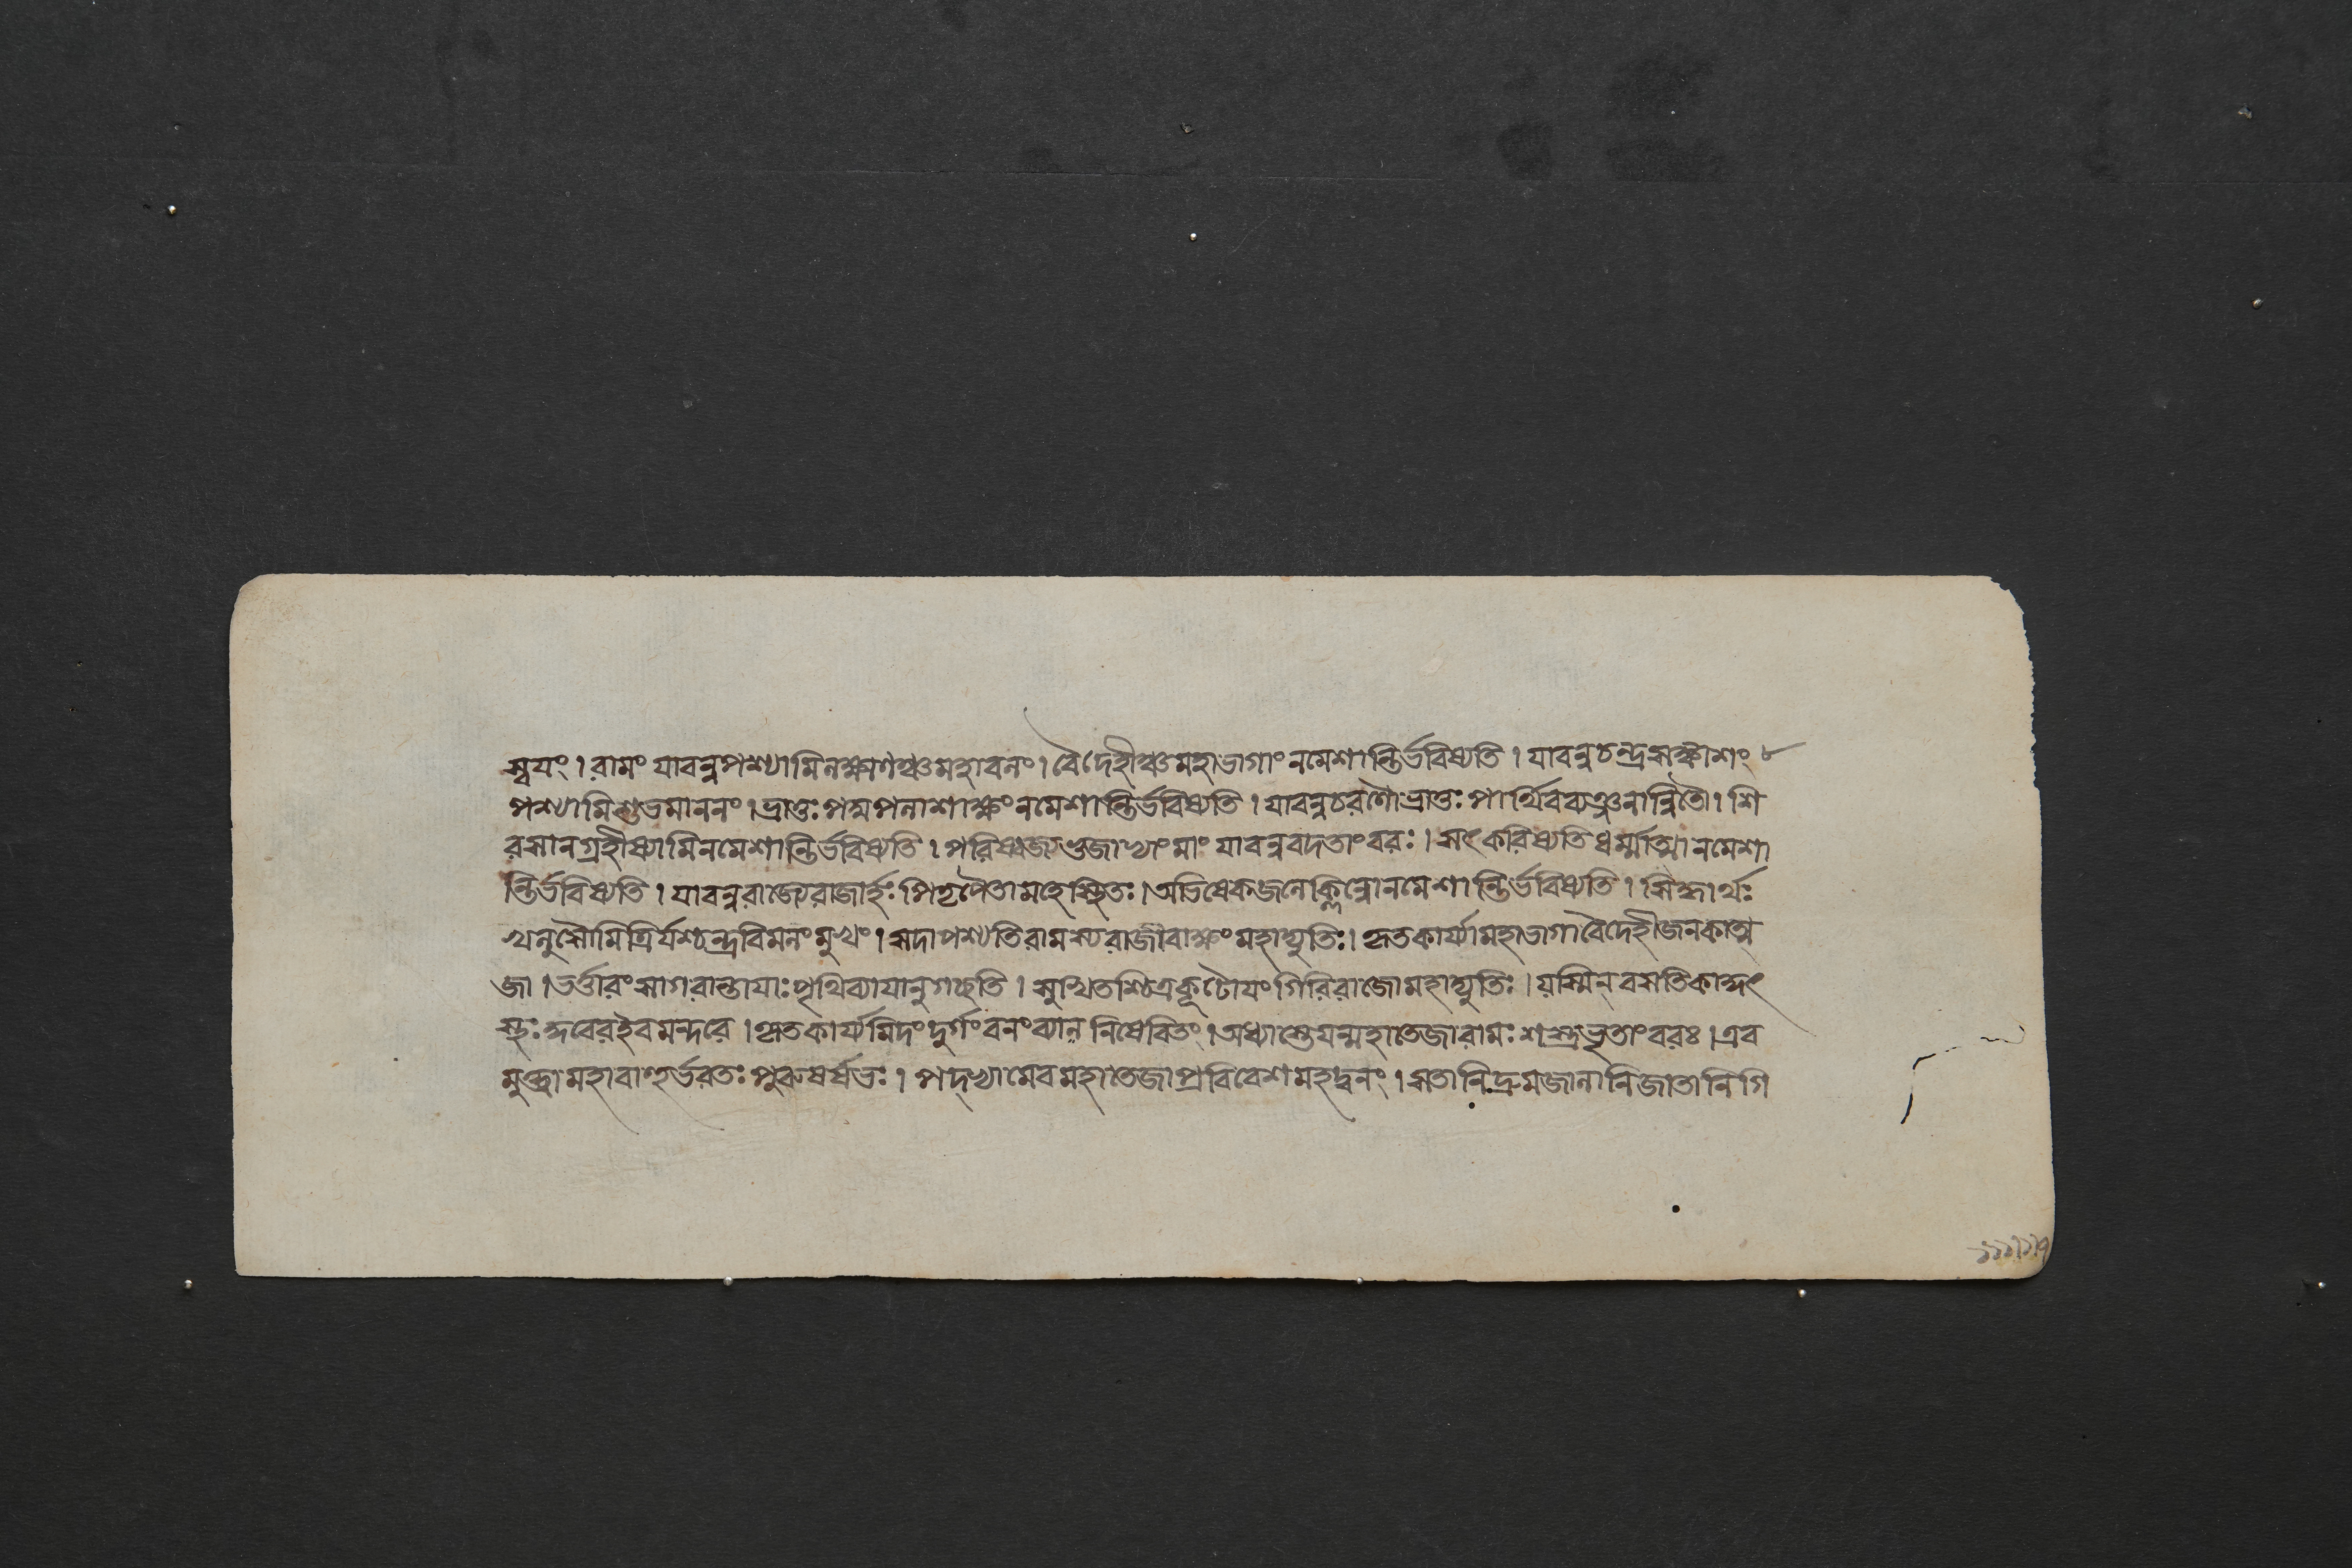 স্বয়ং । রামং যাবন্নপশ্যামিলক্ষ্মণঞ্চমহাবলং । বৈদেহীঞ্চমহাভাগাংনমেশান্তির্ভবিষ্যতি । যাবন্নচন্দ্রসঙ্কাশং
পশ্যামিশুভমাননং । ভ্রাতুঃপদ্মপলাশাক্ষংনমেশান্তির্ভবিষ্যতি । যাবন্নচরণৌভ্রাতুঃপার্থিবব্যঞ্জনান্বিতৌ । শি
রসানগ্রহীষ্যামিনমেশান্তির্ভবিষ্যতি । পরিষ্বজ্যভুজাভ্যাংমাং যাবন্নবদতাংবরঃ । সৎকরিষ্যতিধর্ম্মাত্মানমেশা
ন্তির্ভবিষ্যতি । যাবন্নরাজ্যেরাজার্হঃপিতৃপৈতামহেস্থিতঃ । অভিষেকজলেক্লিন্নোনমেশান্তির্ভবিষ্যতি । সিদ্ধার্থঃ
খলুসৌমিত্রির্যশ্চন্দ্রবিমলংমুখং । সদাপশ্যতিরামস্যরাজীবাক্ষংমহাদ্যুতিঃ । কৃতকার্য্যামহাভাগাবৈদেহীজনকাত্ম
জা । ভর্ত্তারংসাগরান্তায়াঃপৃথিব্যাযানুগচ্ছতি । সুস্থিতশ্চিত্রকূটোয়ংগিরিরাজোমহাদ্যুতিঃ । যস্মিন্ বসতিকাকুৎ
স্থঃকুবেরইবমন্দরে । কৃতকার্য্যমিদংদুর্গংবনংব্যাল নিষেবিতং । অধ্যাস্তেযন্মহাতেজারামঃশস্ত্রভৃতাংবরঃ । এব
মুক্ত্বামহাবাহুর্ভরতঃপুরুষর্ষভঃ । পদ্ভ্যামেবমহাতেজাপ্রবিবেশমহদ্বনং । সতানিদ্রুমজালানিজাতানিগি